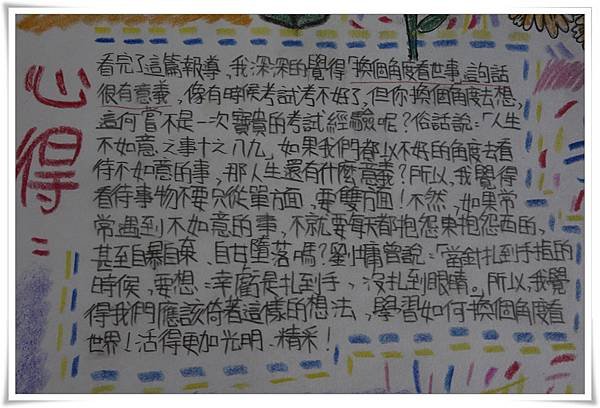 心得：
看完了這篇報導，我深深的覺得「換個角度看世事」這句話
很有意義，像有時候考試考不好了，但你換個角度去想，
這何嘗不是一次寶貴的考試經驗呢？俗話說：「人生
不如意之事十之八九」如果我們都以不好的角度去看
待不如意的事，那人生還有什麼意義？所以，我覺得
看待事物不要只從單方面，要雙方面！不然，如果常
常遇到不如意的事，不就要每天都抱怨東抱怨西的，
甚至自暴自棄、自甘墮落嗎？劉墉曾說：「當針扎到手指的
時候，要想：幸虧是扎到手，沒扎到眼睛。所以，我覺
得我們應該倚著這樣的想法，學習如何換個角度看
世界！活得更加光明、精采！